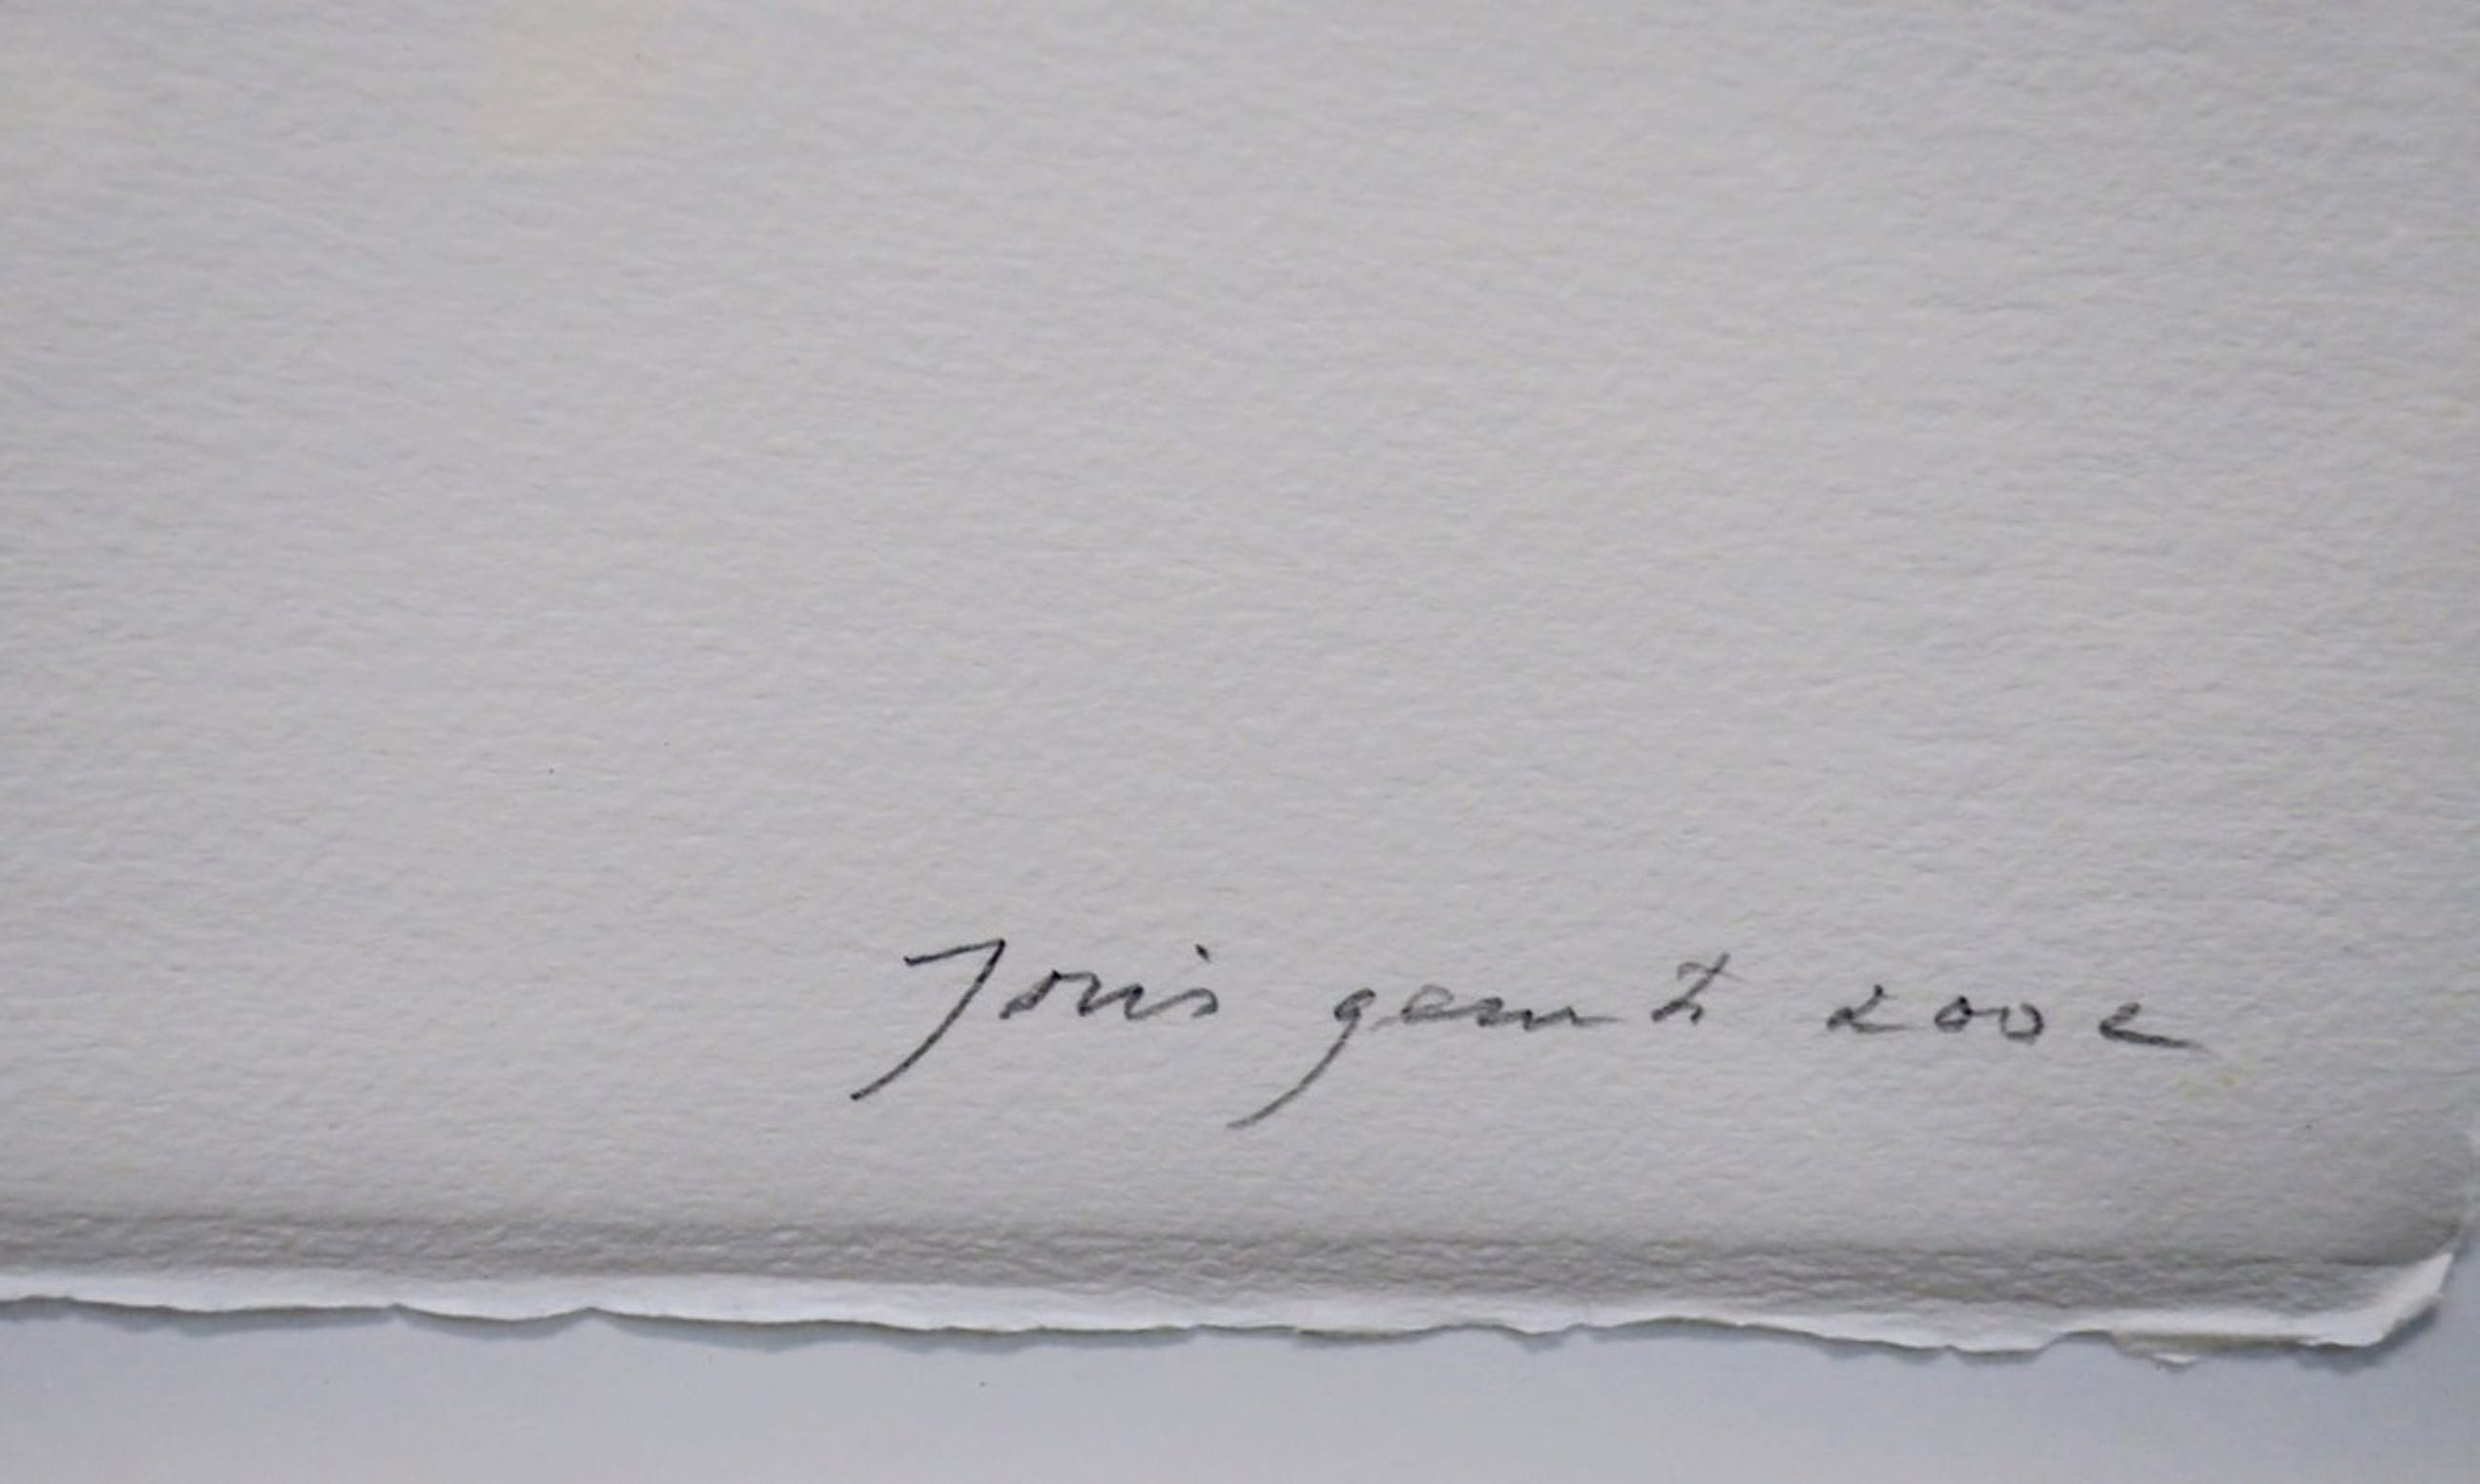 Joris geurt 2002